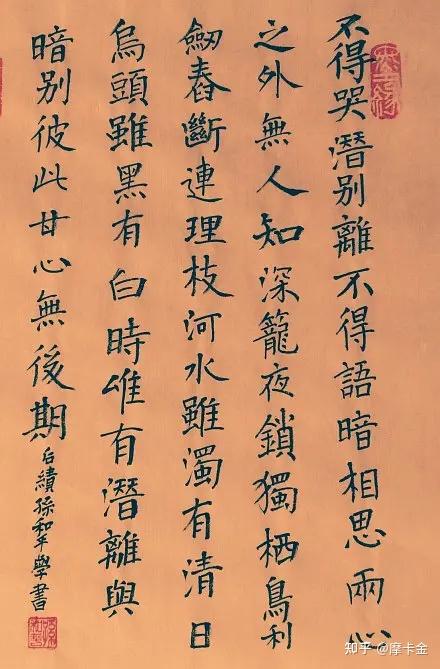 不得哭潛别離不得語暗相思兩心
之外無人知深籠夜鎖獨栖鳥利
劒舂斷連理枝河水雖濁有清日
烏頭雖黑有白時唯有潛離與
暗别彼此甘心無後期
績孫和平學書
知乎 @摩卡金